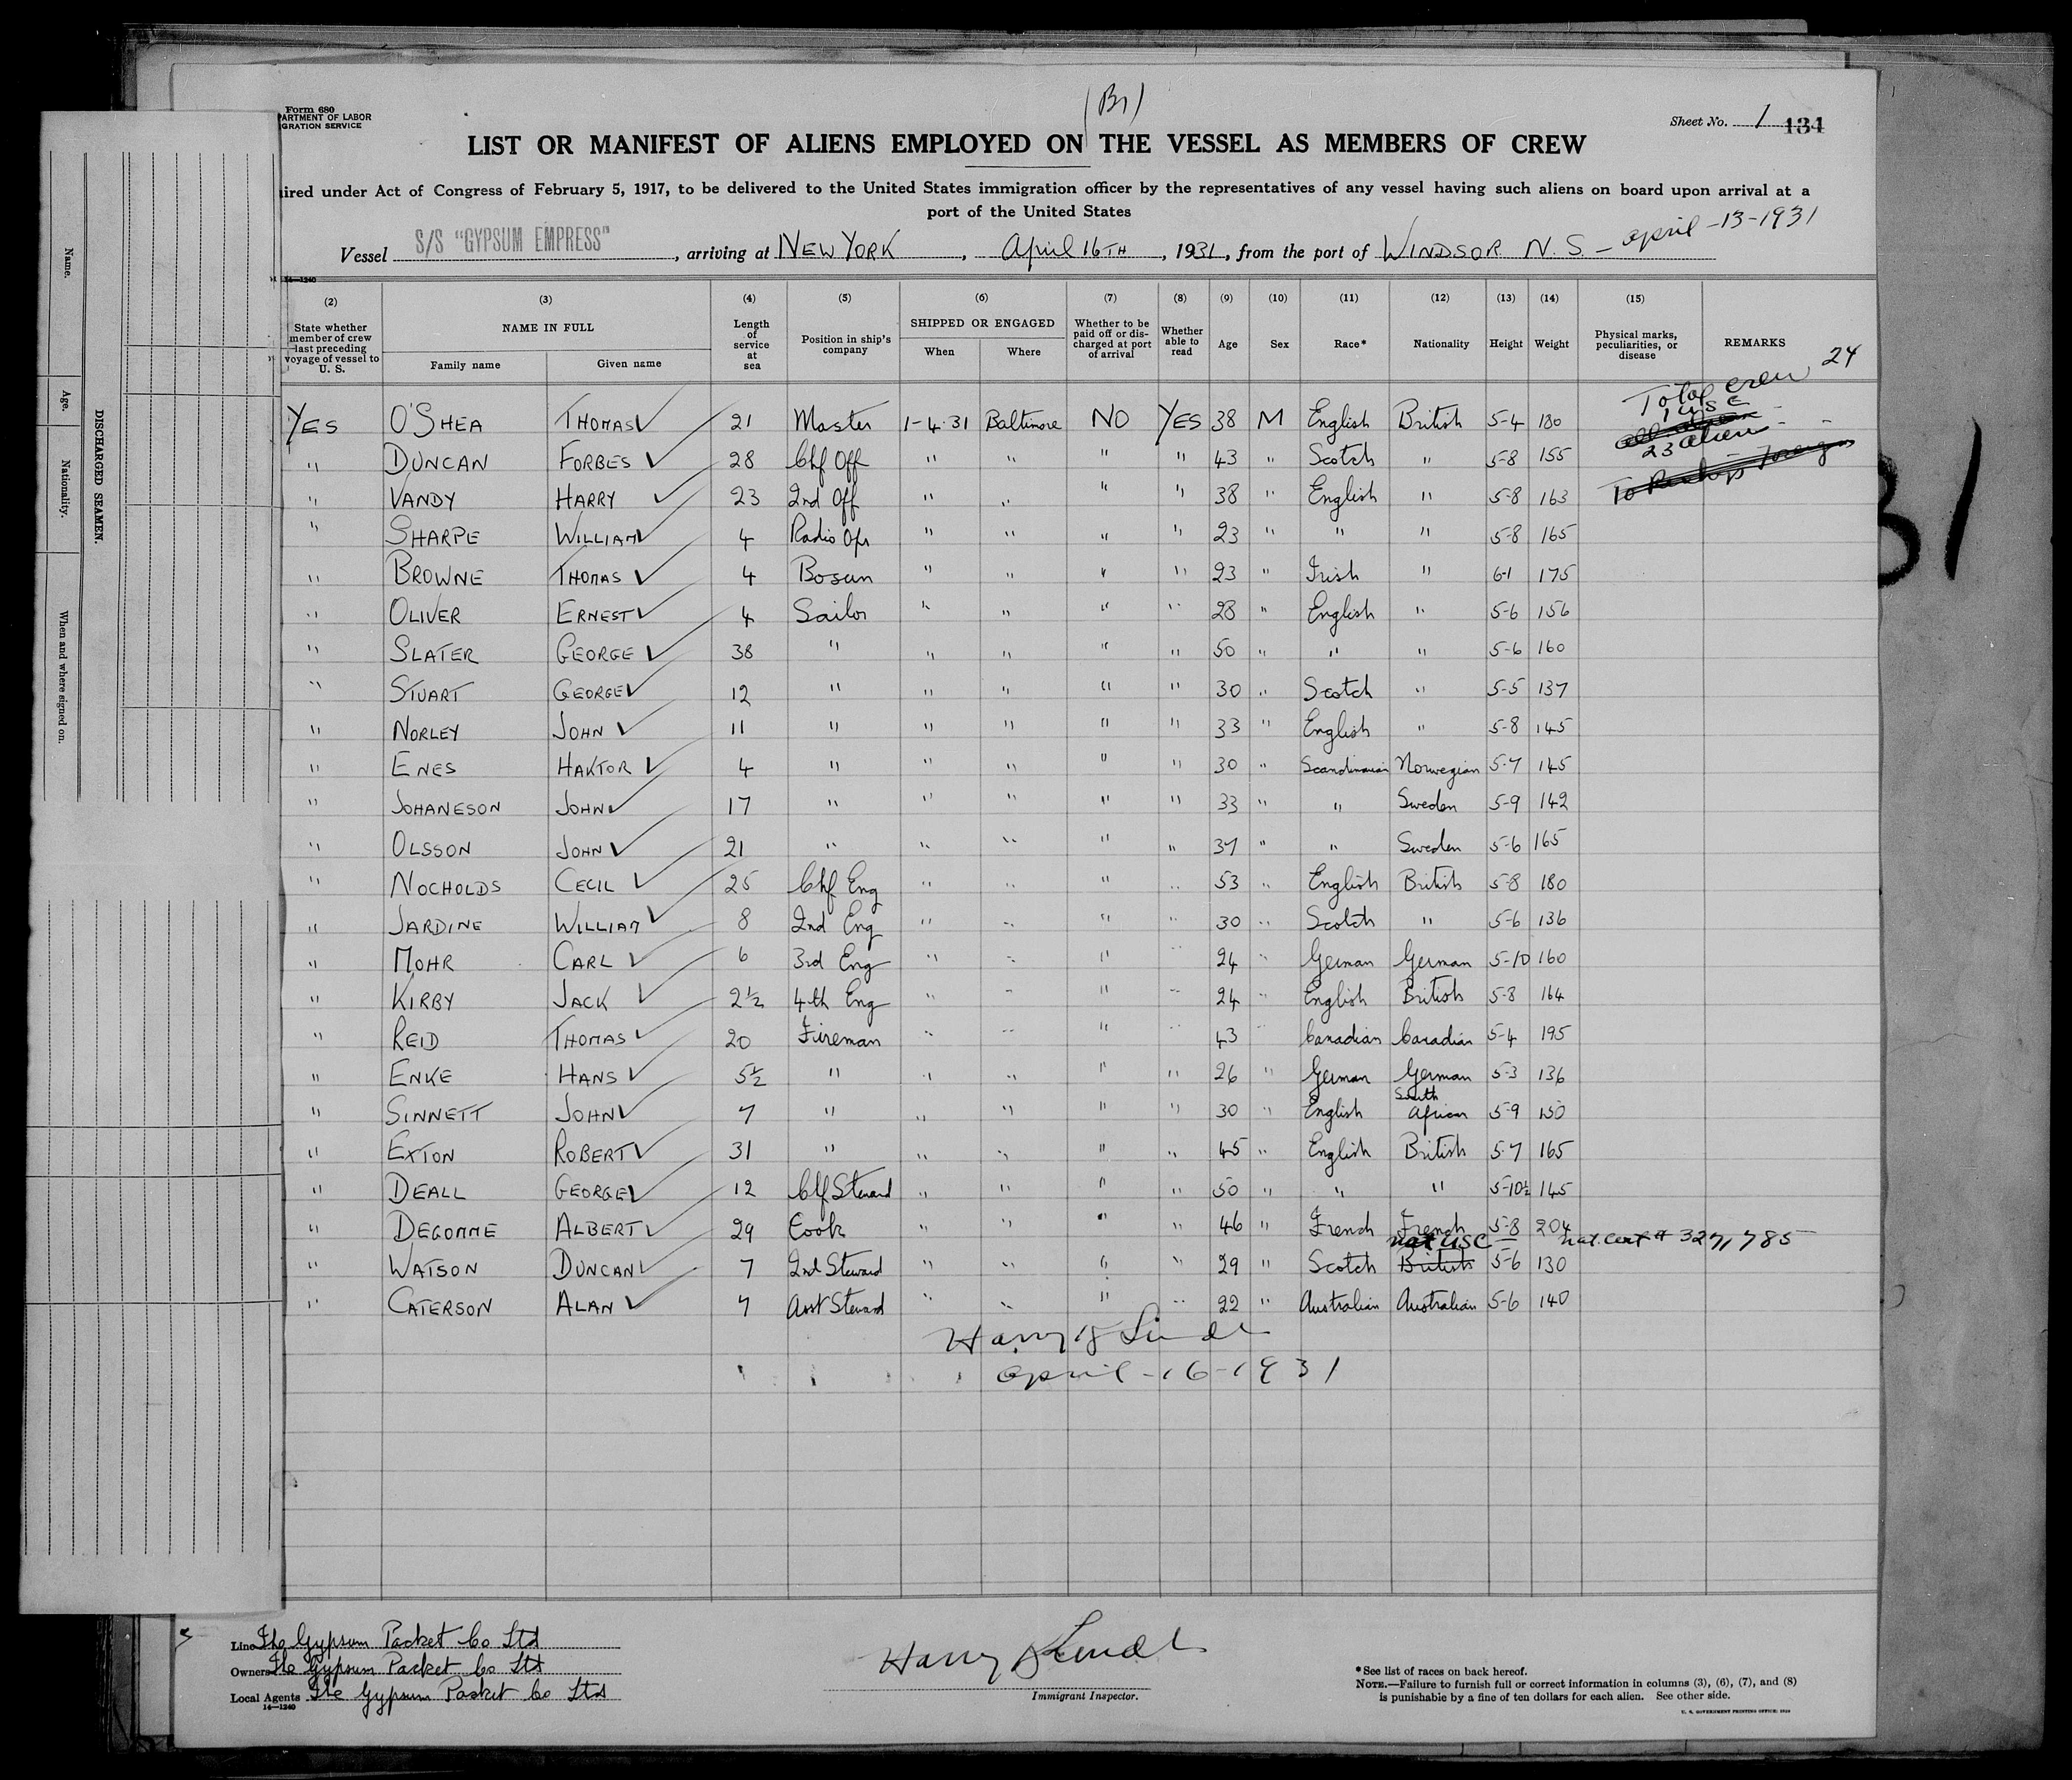 (B1)
Form 680
PARTMENT OF LABOR
GRATION SERVICE
Sheet No. 1 134
LIST OR MANIFEST OF ALIENS EMPLOYED ON THE VESSEL AS MEMBERS OF CREW
ired under Act of Congress of February 5, 1917, to be delivered to the United States immigration officer by the representatives of any vessel having such aliens on board upon arrival at a
port of the United States
Vessel S/S "GYPSUM EMPRESS", arriving at NEW YORK, April 16TH, 1931, from the port of WINDSOR N.S. - april-13-1931
14—1240
(2) (3) (4) (5) (6) (7) (8) (9) (10) (11) (12) (13) (14) (15)
State whether member of crew last preceding voyage of vessel to U. S. NAME IN FULL Family name Given name Length of service at sea Position in ship's company SHIPPED OR ENGAGED When Where Whether to be paid off or discharged at port of arrival Whether able to read Age Sex Race* Nationality Height Weight Physical marks, peculiarities, or disease REMARKS
Total crew 24
1 USC
23 alien
YES O'SHEA THOMAS 21 Master 1-4-31 Baltimore NO YES 38 M English British 5-4 180
" DUNCAN FORBES 28 Chf Off " " " " 43 " Scotch " 5-8 155
" VANDY HARRY 23 2nd Off " " " " 38 " English " 5-8 163
" SHARPE WILLIAM 4 Radio Opr " " " " 23 " " " 5-8 165
" BROWNE THOMAS 4 Bosun " " " " 23 " Irish " 6-1 175
" OLIVER ERNEST 4 Sailor " " " " 28 " English " 5-6 156
" SLATER GEORGE 38 " " " " " 50 " " " 5-6 160
" STUART GEORGE 12 " " " " " 30 " Scotch " 5-5 137
" NORLEY JOHN 11 " " " " " 33 " English " 5-8 145
" ENES HAKTOR 4 " " " " " 30 " Scandinavian Norwegian 5-7 145
" JOHANESON JOHN 17 " " " " " 33 " " Sweden 5-9 142
" OLSSON JOHN 21 " " " " " 37 " " Sweden 5-6 165
" NOCHOLDS CECIL 25 Chf Eng " " " " 53 " English British 5-8 180
" JARDINE WILLIAM 8 2nd Eng " " " " 30 " Scotch " 5-6 136
" MOHR CARL 6 3rd Eng " " " " 24 " German German 5-10 160
" KIRBY JACK 2½ 4th Eng " " " " 24 " English British 5-8 164
" REID THOMAS 20 Fireman " " " " 43 " Canadian Canadian 5-4 195
" ENKE HANS 5½ " " " " " 26 " German German 5-3 136
" SINNETT JOHN 7 " " " " " 30 " English South African 5-9 150
" EXTON ROBERT 31 " " " " " 45 " English British 5-7 165
" DEALL GEORGE 12 Chf Steward " " " " 50 " " " 5-10½ 145
" DEGOMME ALBERT 29 Cook " " " " 46 " French French 5-8 204
nat USC nat. cert # 327,785
" WATSON DUNCAN 7 2nd Steward " " " " 29 " Scotch British 5-6 130
" CATERSON ALAN 7 Asst Steward " " " " 22 " Australian Australian 5-6 140
april-16-1931
Line The Gypsum Packet Co Ltd
Owners The Gypsum Packet Co Ltd
Local Agents The Gypsum Packet Co Ltd
14—1240
Immigrant Inspector.
*See list of races on back hereof.
NOTE.—Failure to furnish full or correct information in columns (3), (6), (7), and (8)
is punishable by a fine of ten dollars for each alien. See other side.
Name.
Age.
Nationality.
When and where signed on.
DISCHARGED SEAMEN.
31